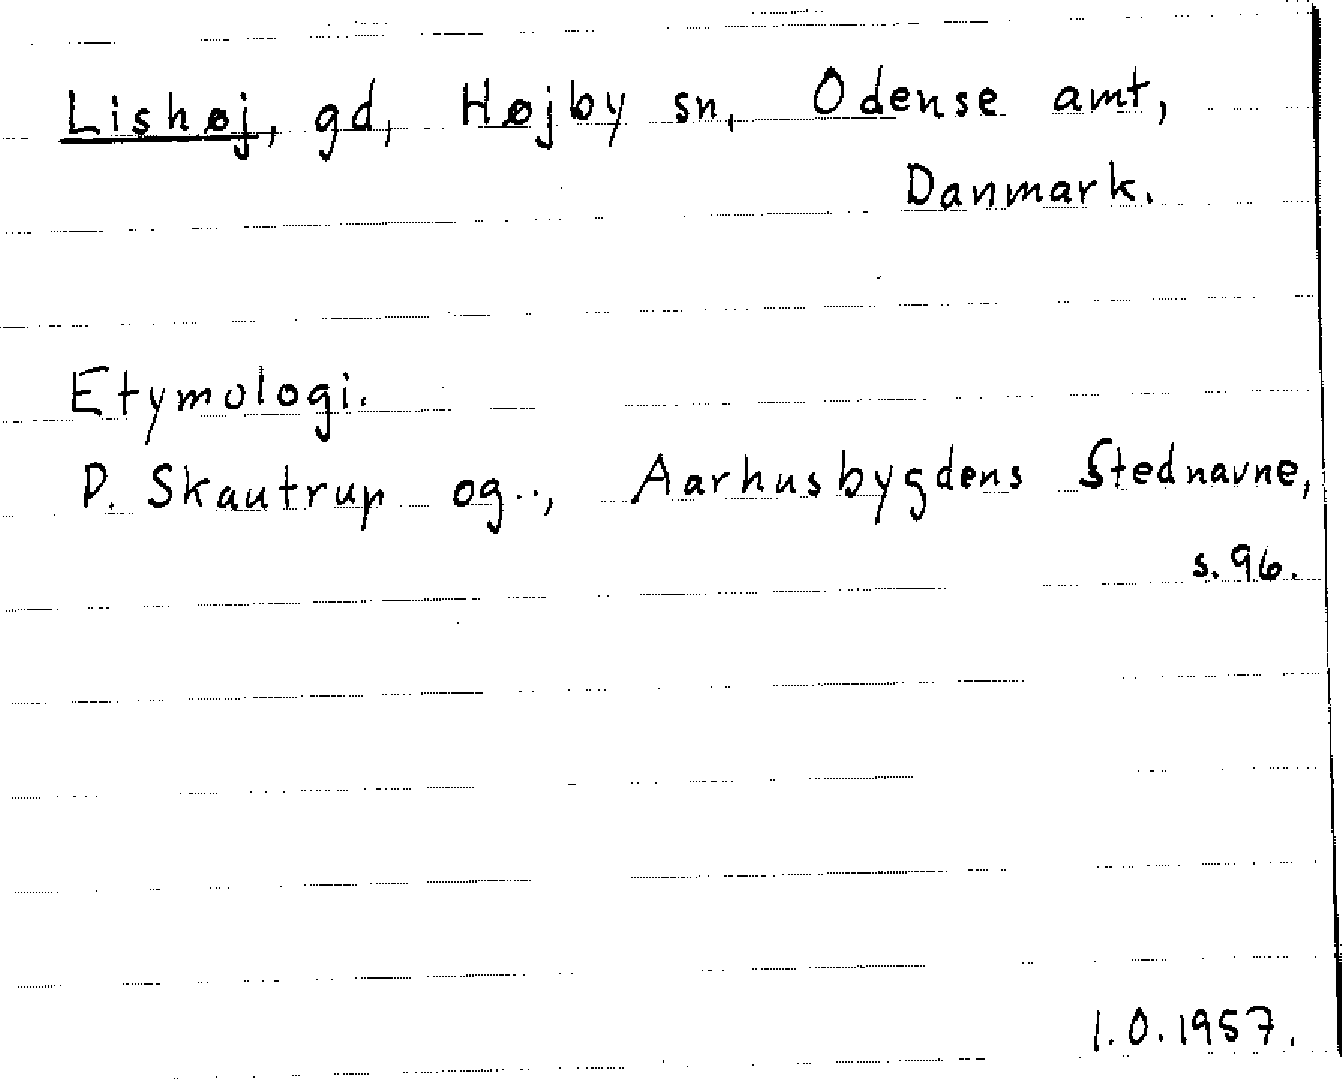 Lishøj, gd, Højby sn, Odense amt,
Danmark.
Etymologi.
P. Skautrup og.., Aarhusbygdens Stednavne,
s. 96.
I.O. 1957.